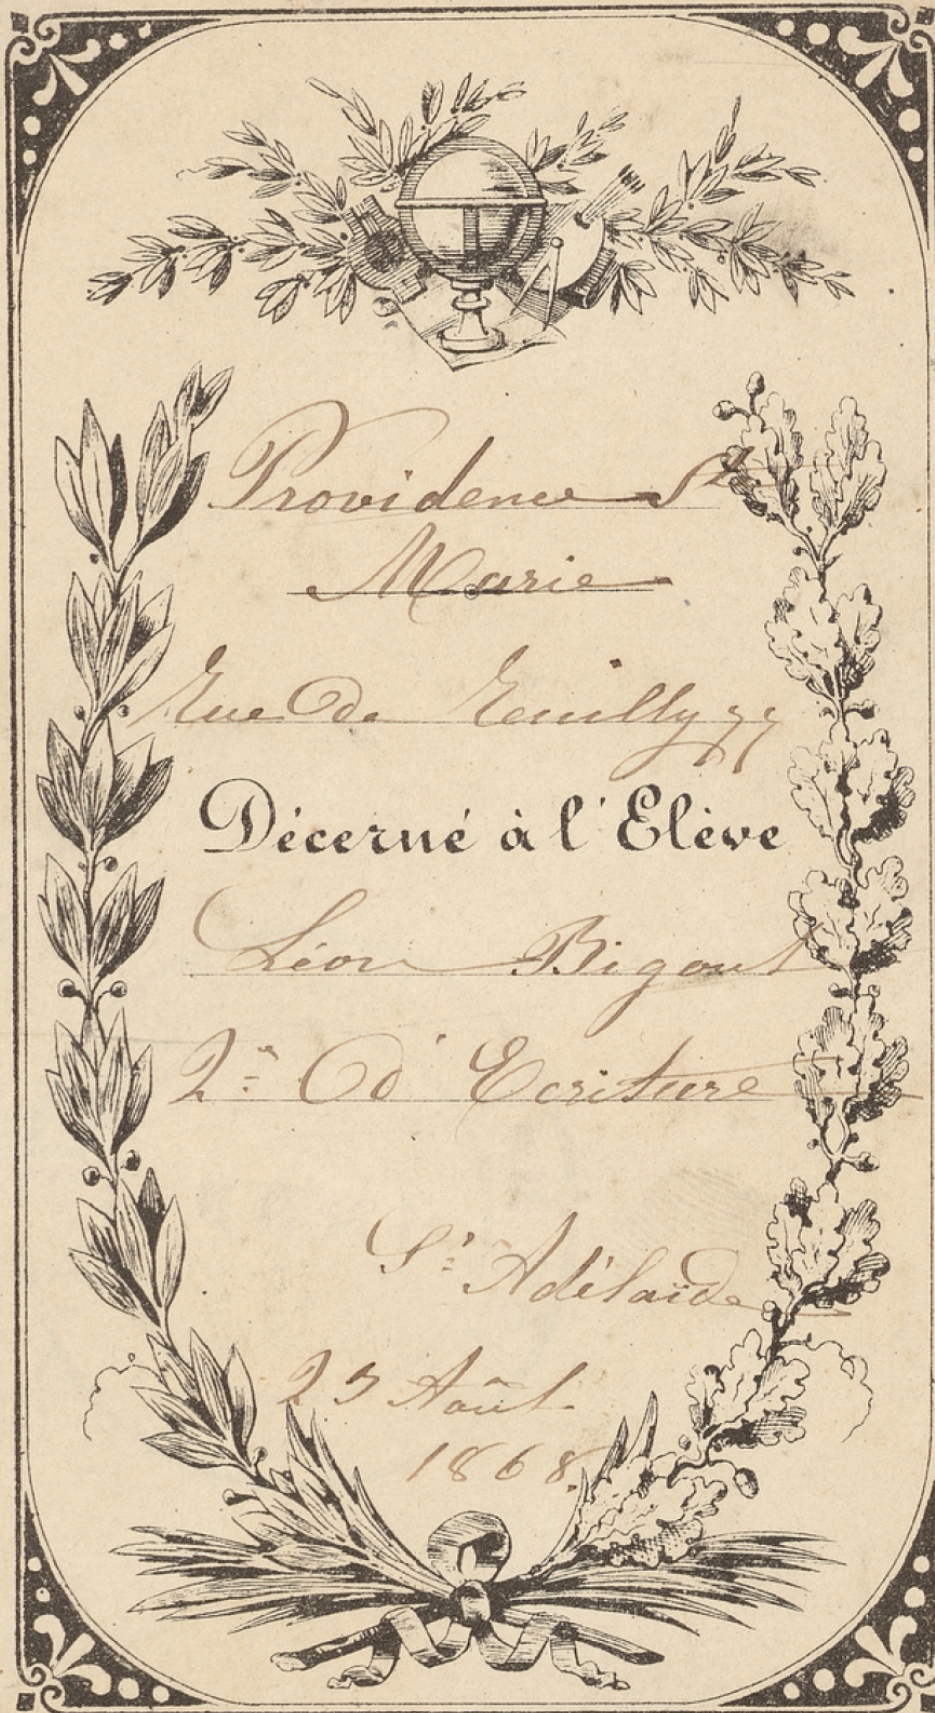 Providence Ste
Marie
Rue de Reuilly 77
Décerné à l'Elève
Léon Bigout
2e d'Ecriture
Sr Adélaïde
25 Août
1868.